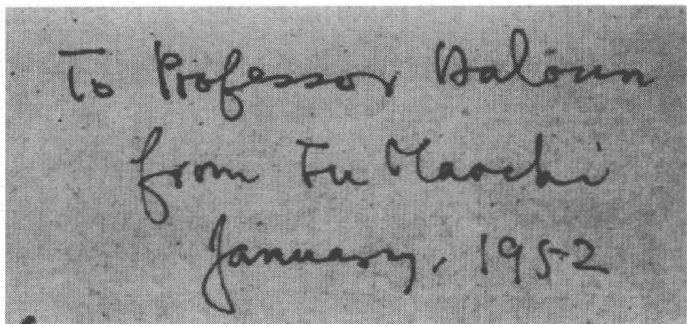 To Professor Haloun
from Fu Maochi
January, 1952